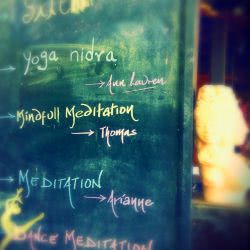 Yoga nidra
→ Ann Lauren
→ Mindfull Meditation
→ Thomas
→ MEDITATION
→ Arianne
DANCE MEDITATION